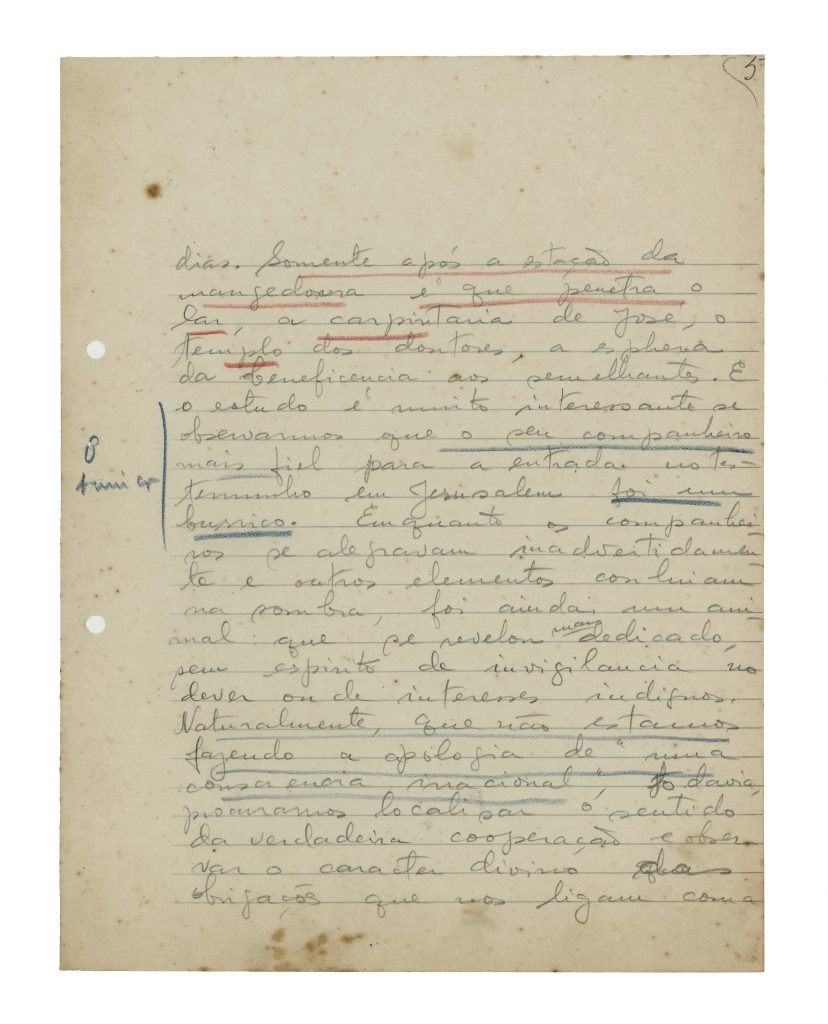 5
dias. Somente após a estação da
mangedoura é que penetra o
lar, a carpintaria de José, o
templo dos doutores, a esphera
da beneficencia aos semelhantes. E
o estudo é muito interessante se
observarmos que o seu companheiro
mais fiel para a entrada no tes-
temunho em Jerusalem foi um
burrico. Emquanto os companhei-
ros se alegravam inadvertidamen-
te e outros elementos conluiam
na sombra, foi ainda um ani-
mal que se revelou mais dedicado,
sem espirito de invigilancia no
dever ou de interesses indignos.
Naturalmente, que não estamos
fazendo a apologia de "uma
consciencia irracional", todavia,
procuramos localizar o sentido
da verdadeira cooperação e obser-
var o caracter divino das
obrigações que nos ligam com a